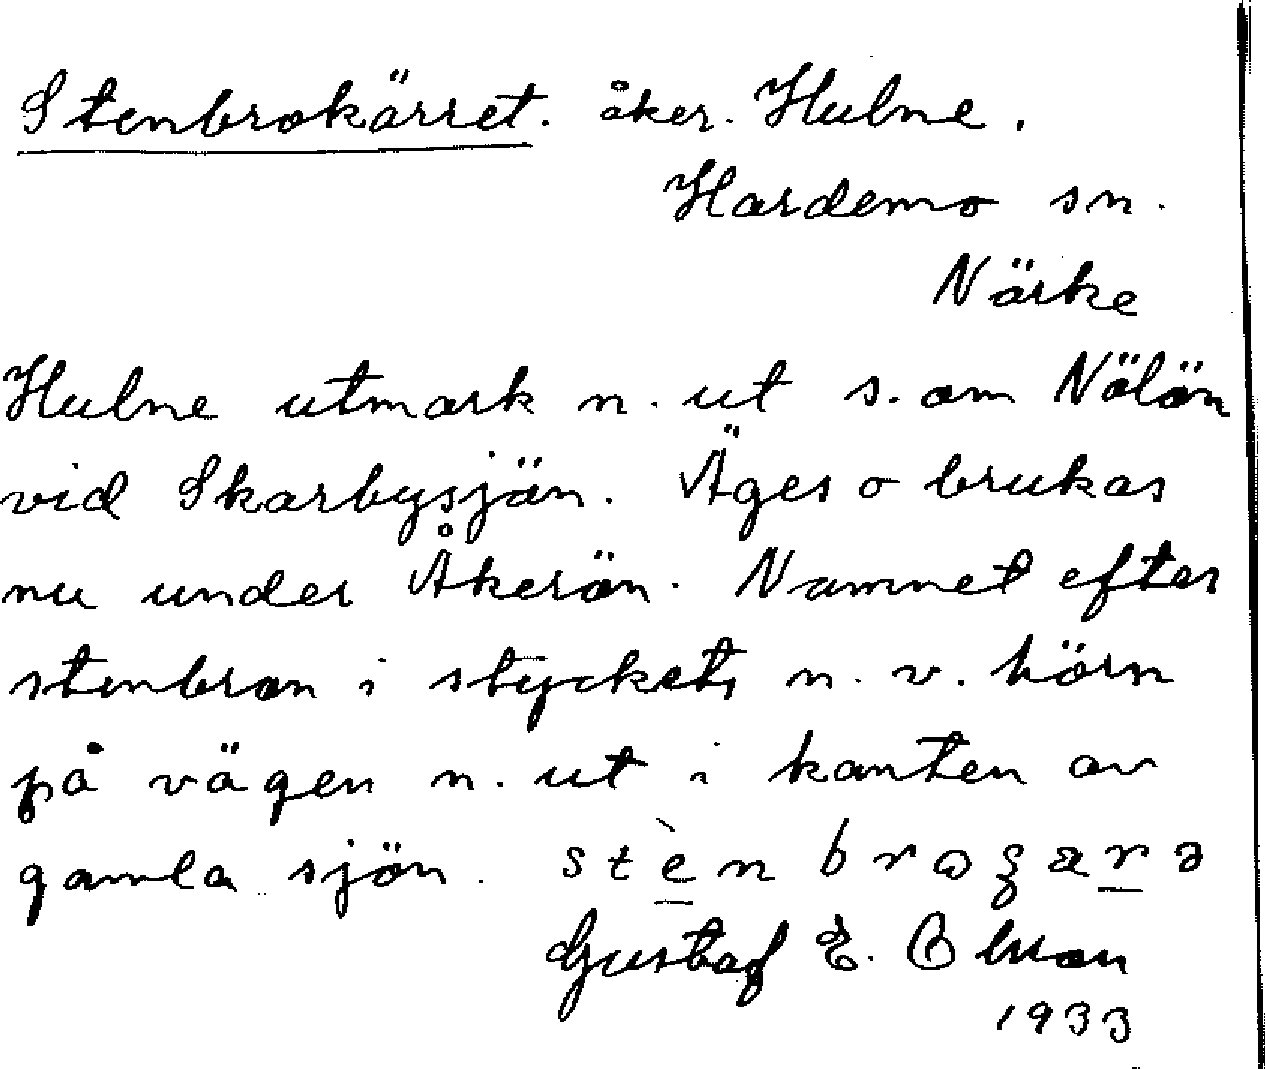 Stenbrokärret. åker. Hulne.
Hardemo sn.
Närke
Hulne utmark n. ut s. om Nölön
vid Skarbysjön. Äges o brukas
nu under Åkerön. Namnet efter
stenbron i styckets n. v. hörn
på vägen n. ut i kanten av
gamla sjön.
Gustaf E.
1933